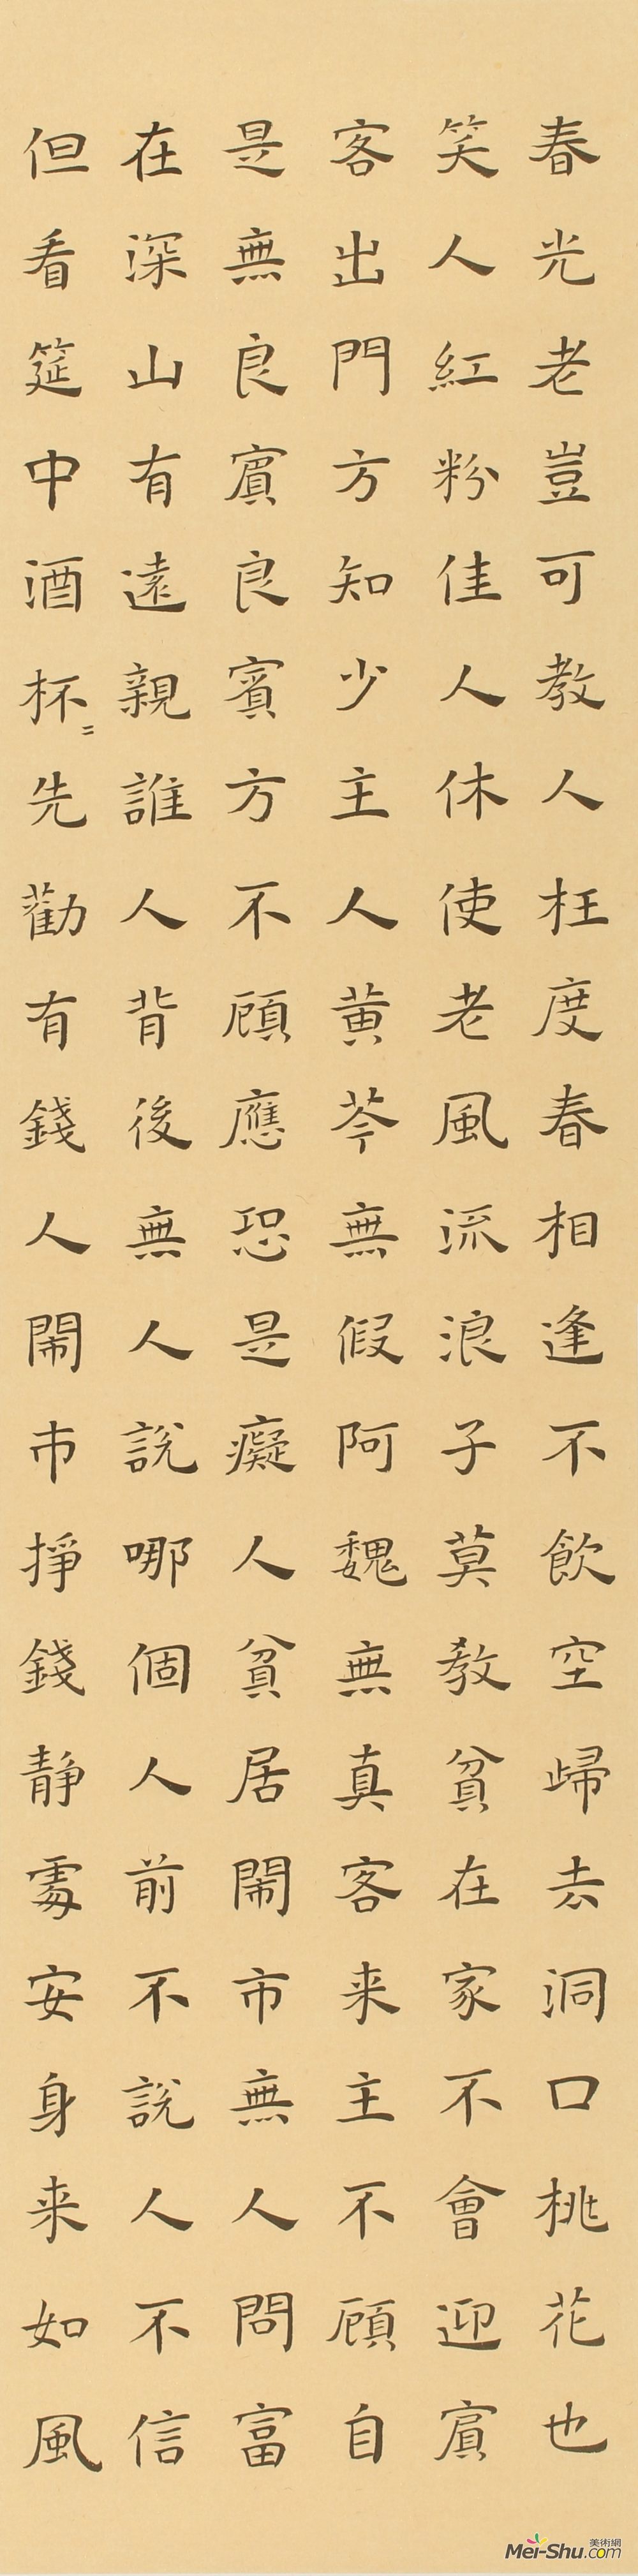 春光老豈可教人枉度春相逢不飲空歸去洞口桃花也
笑人紅粉佳人休使老風流浪子莫教貧在家不會迎賓
客出門方知少主人黃芩無假阿魏無真客来主不顧自
是無良賓良賓方不顧應恐是癡人貧居鬧市無人問富
在深山有遠親誰人背後無人說哪個人前不說人不信
但看筵中酒杯〻先勸有錢人鬧市掙錢静處安身来如風
美術網
Mei-Shu.com